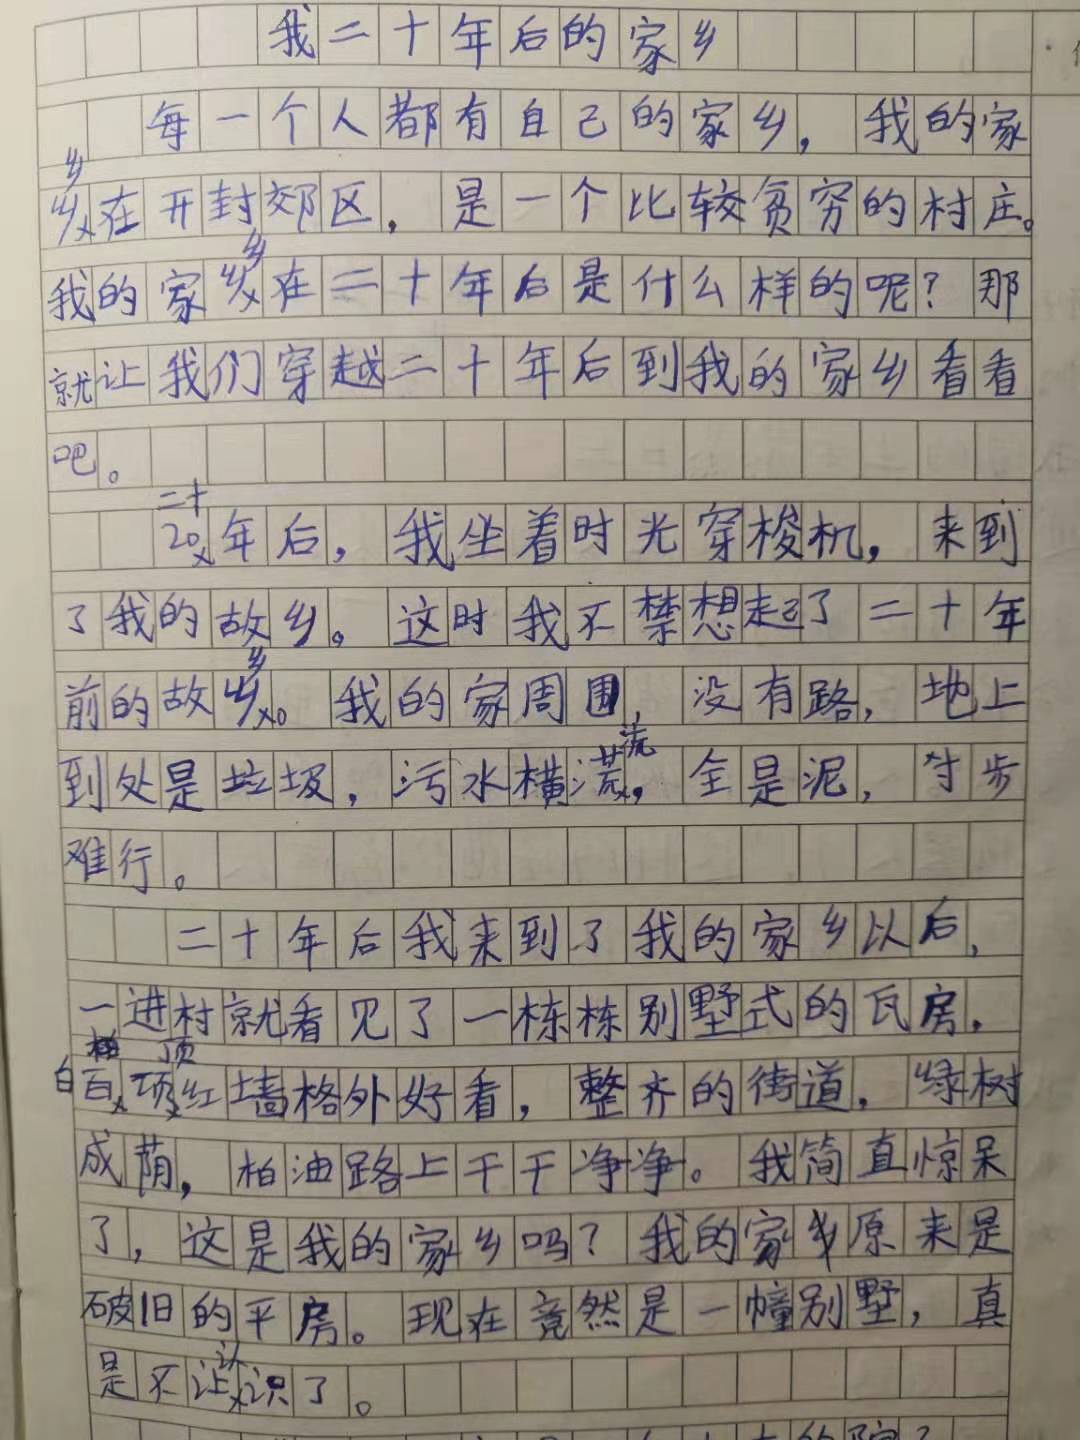 我二十年后的家乡
每一个人都有自己的家乡，我的家
乡
乡在开封郊区，是一个比较贫穷的村庄。
乡
我的家乡在二十年后是什么样的呢？那
就让我们穿越二十年后到我的家乡看看
吧。
二十
20年后，我坐着时光穿梭机，来到
了我的故乡。这时我不禁想起了二十年
乡
前的故乡。我的家周围，没有路，地上
流
到处是垃圾，污水横流，全是泥，寸步
难行。
二十年后我来到了我的家乡以后，
一进村就看见了一栋栋别墅式的瓦房，
白 顶
百项红墙格外好看，整齐的街道，绿树
成荫，柏油路上干干净净。我简直惊呆
了，这是我的家乡吗？我的家乡原来是
破旧的平房。现在竟然是一幢别墅，真
认
是不让识了。